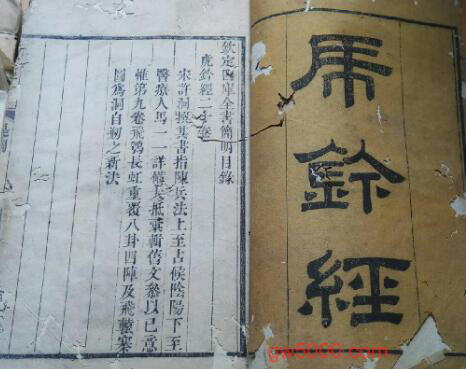 虎鈐經
欽定四庫全書簡明目錄
虎鈐經二十卷
宋許洞撰其書指陳兵法上至占候陰陽下至
醫療人馬一一詳備大抵彙輯舊文參以已意
惟第九卷飛鶚長虹重覆八卦四陣及飛轅寨
圖爲洞自剏之新法
gw5000.com